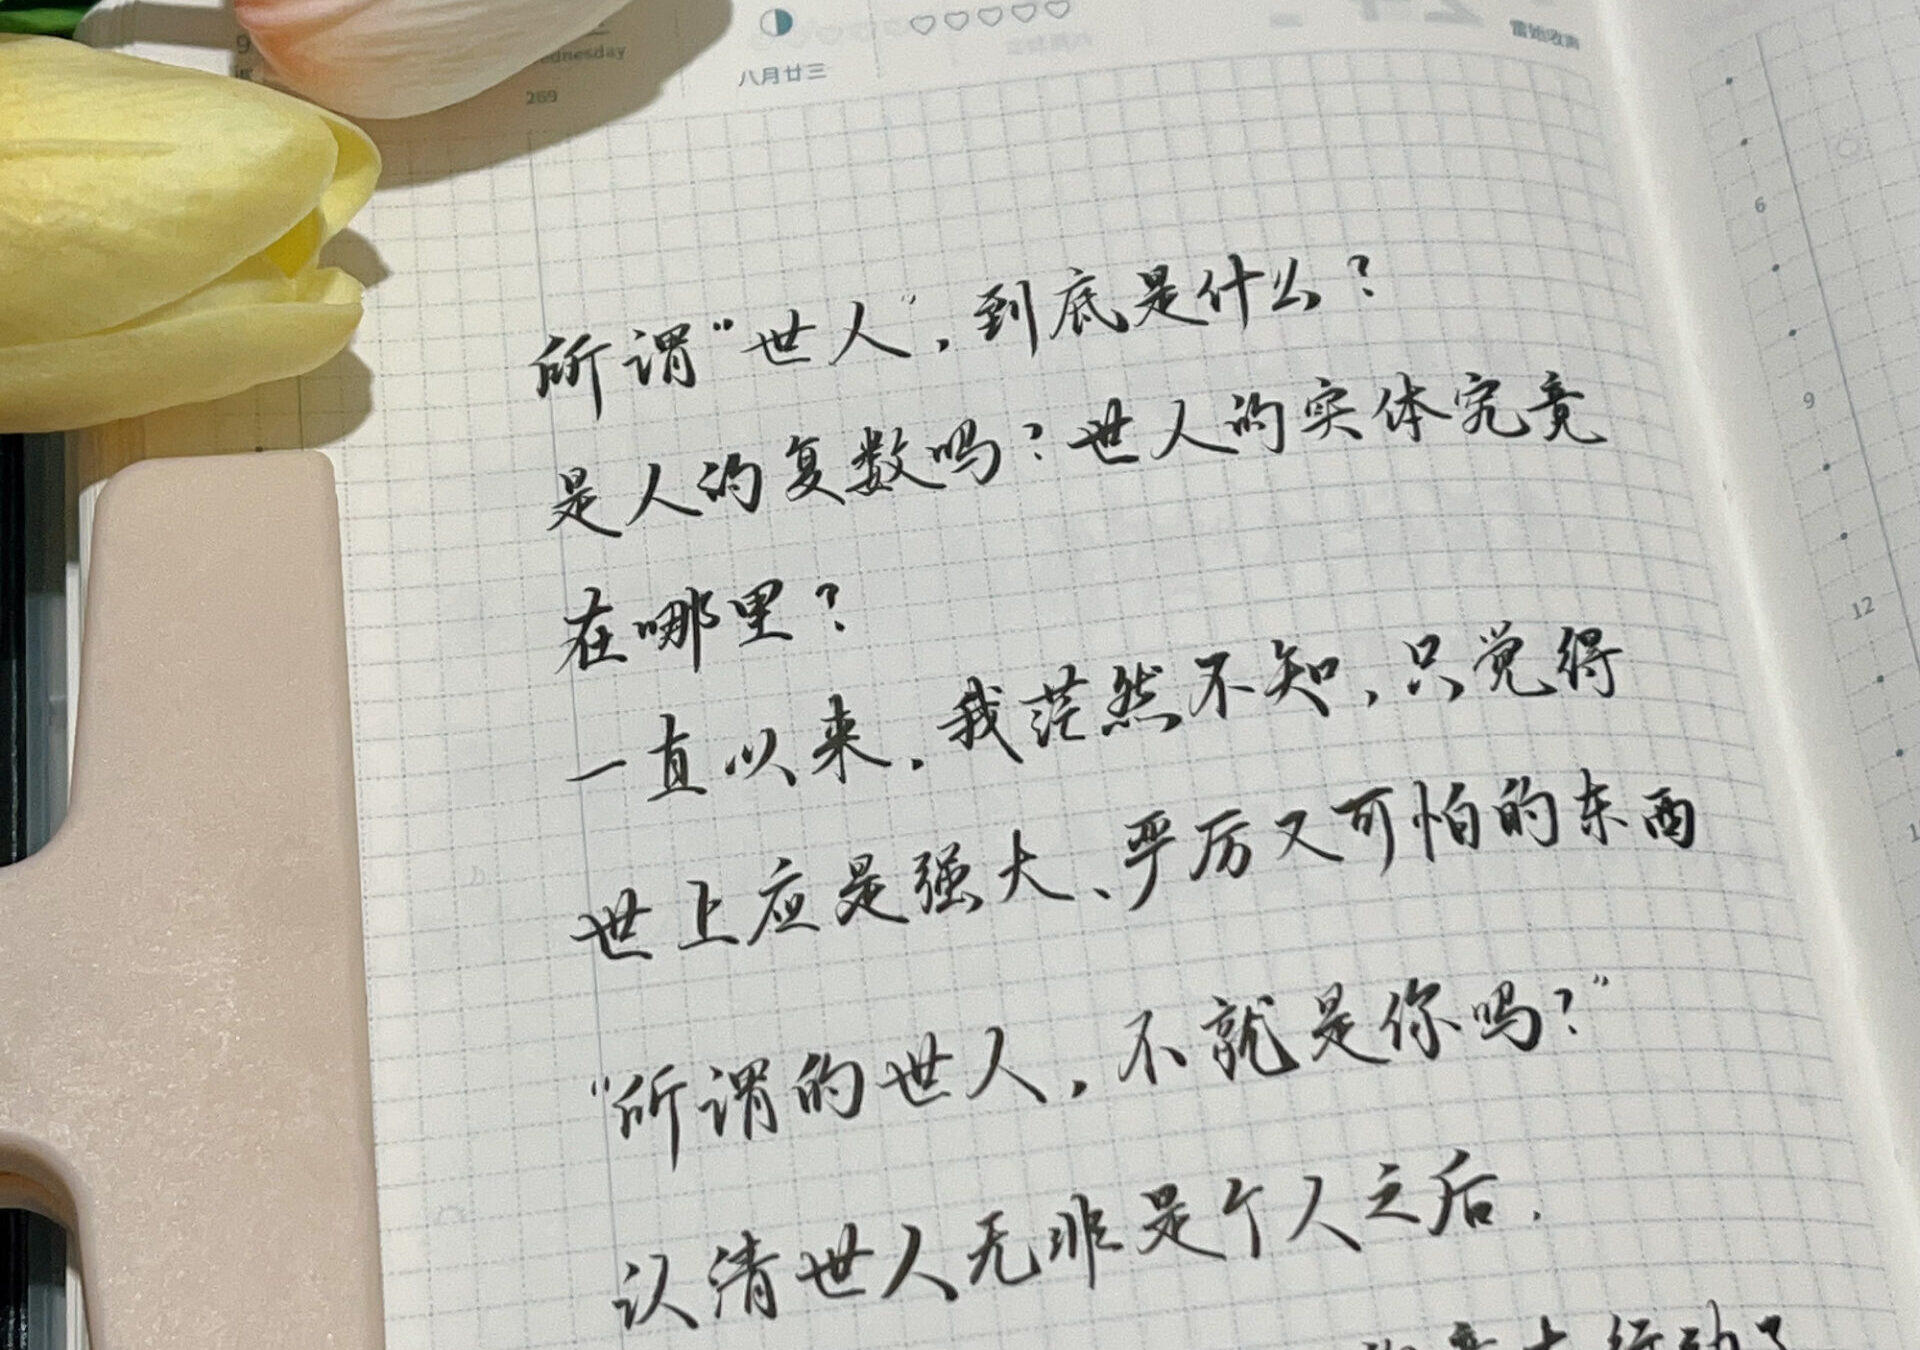 八月廿三
269
所谓“世人”，到底是什么？
是人的复数吗？世人的实体究竟
在哪里？
一直以来，我茫然不知，只觉得
世上应是强大、严厉又可怕的东西
“所谓的世人，不就是你吗？”
认清世人无非是个人之后，
6
9
12